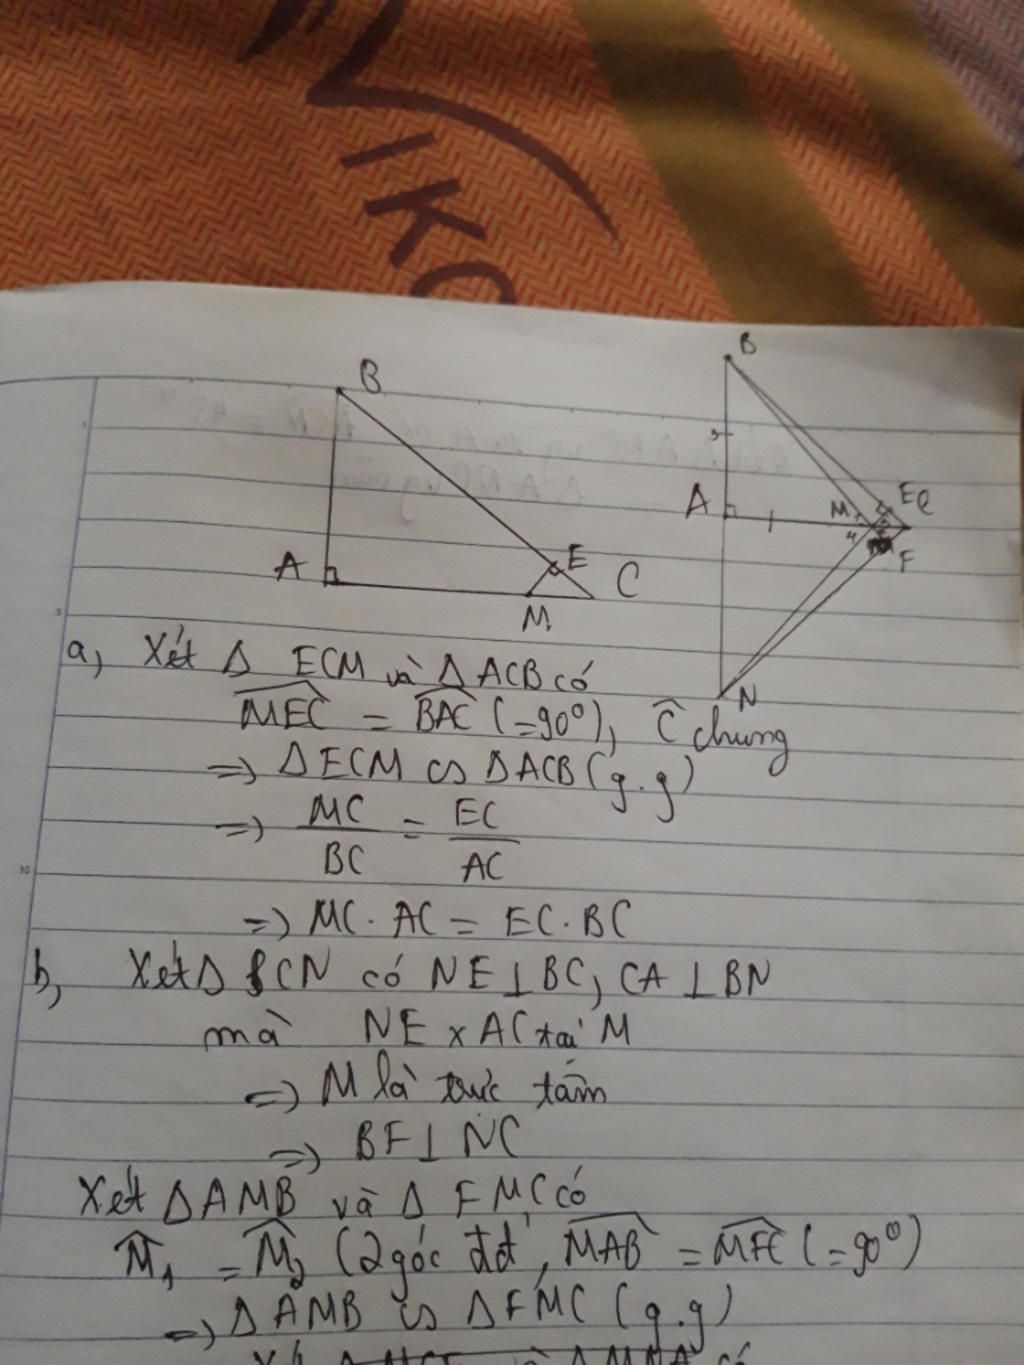 B
A
E
C
M
B
A
M
E
C
F
N
a, Xét Δ ECM và Δ ACB có
MEC = BAC (=90°), C chung
=> ΔECM ∽ ΔACB (g.g)
=> MC/BC = EC/AC
=> MC . AC = EC . BC
b, Xét Δ BCN có NE ⊥ BC, CA ⊥ BN
mà NE x AC tại M
=> M là trực tâm
=> BF ⊥ NC
Xét ΔAMB và Δ FMC có
M1 = M2 (2 góc đđ, MAB = MFC (=90°)
=> ΔAMB ∽ ΔFMC (g.g)